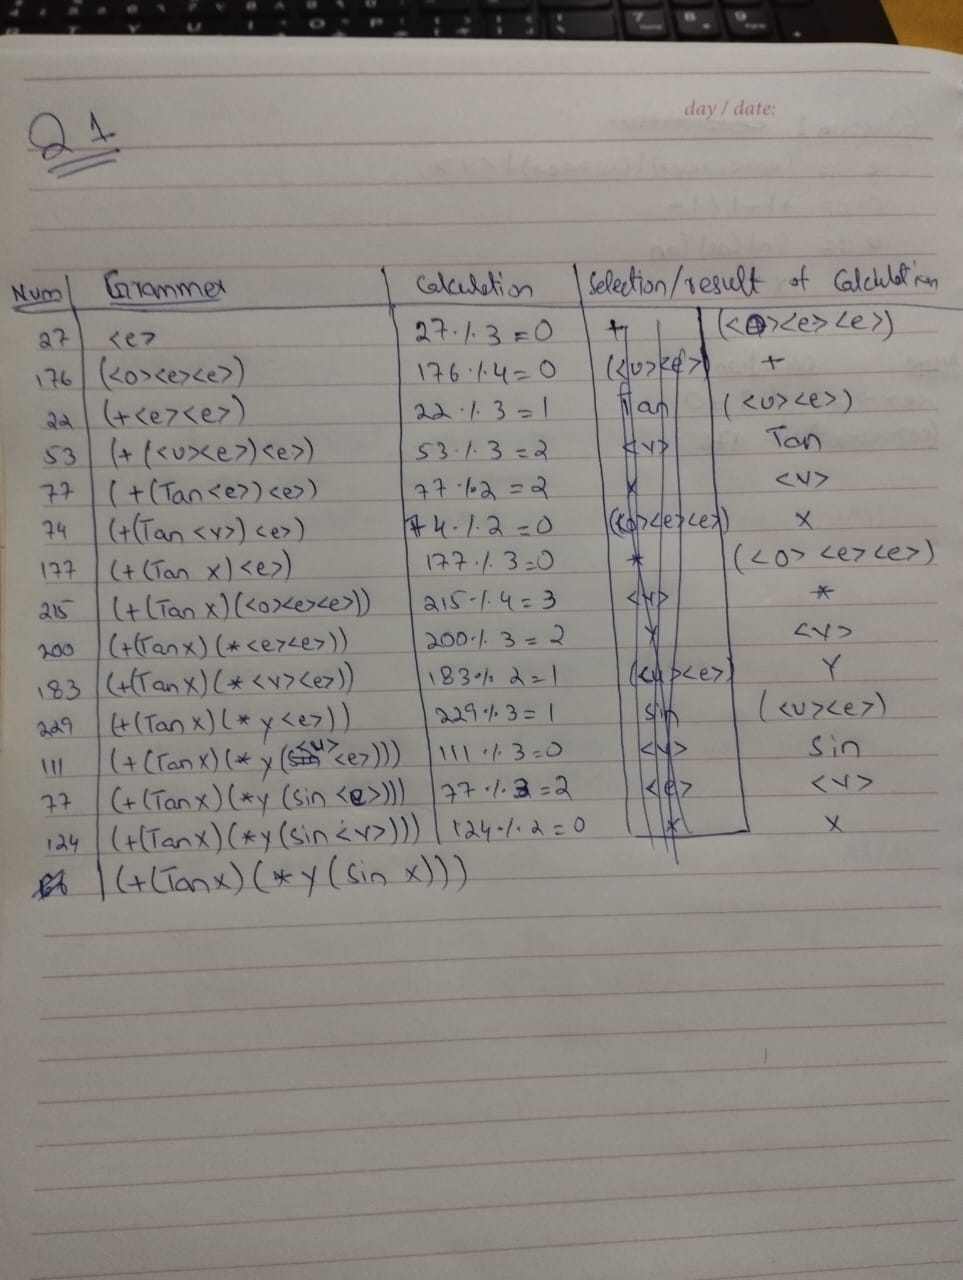 day / date:
Q 1
Num Grammer Calculation Selection/result of Calculation
27 <e> 27 % 3 = 0 + (<o><e><e>)
176 (<o><e><e>) 176 % 4 = 0 (<u><e>) +
22 (+<e><e>) 22 % 3 = 1 Tan (<u><e>)
53 (+(<u><e>)<e>) 53 % 3 = 2 <v> Tan
77 (+(Tan<e>)<e>) 77 % 2 = 2 x <v>
74 (+(Tan <v>)<e>) 74 % 2 = 0 (<o><e><e>) x
177 (+(Tan x)<e>) 177 % 3 = 0 * (<o> <e><e>)
215 (+(Tan x)(<o><e><e>)) 215 % 4 = 3 <v> *
200 (+(Tanx)(*<e><e>)) 200 % 3 = 2 Y <v>
183 (+(Tanx)(*<v><e>)) 183 % 2 = 1 (<u><e>) Y
229 (+(Tanx)(* y<e>)) 229 % 3 = 1 sin (<u><e>)
111 (+(Tanx)(* y(<u><e>))) 111 % 3 = 0 <v> Sin
77 (+(Tanx)(*y (sin <e>))) 77 % 3 = 2 <e> <v>
124 (+(Tanx)(*y(sin <v>))) 124 % 2 = 0 x x
(+(Tanx)(*y(Sin x)))